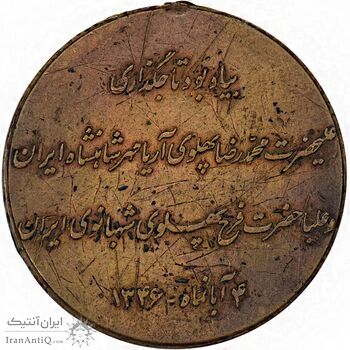 بیاد بود تاجگذاری
علیحضرت محمد رضا پهلوی آریامهر شاهنشاه ایران
و علیا حضرت فرح پهلوی شهبانوی ایران
۴ آبانماه - ۱۳۴۶
ایران آنتیک
IranAntiQ.com